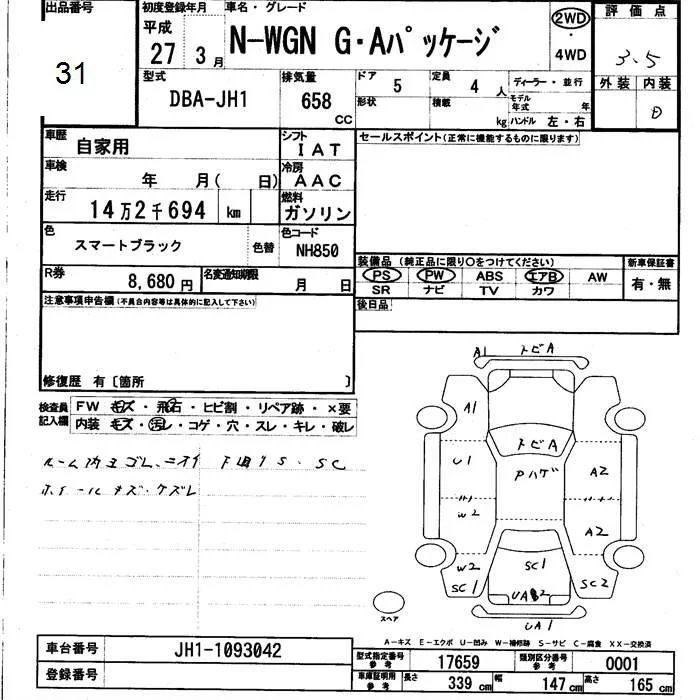 出品番号 初度登録年月 車名・グレード 2WD 評価点
平成 27 3月 N-WGN G・Aパッケージ 4WD 3.5
31
型式 排気量 ドア 5 定員 4人 ディーラー・並行 外装 内装
DBA-JH1 658 cc 形状 積載 kg モデル年式 年 D
ハンドル 左・右
車歴 自家用 シフト IAT セールスポイント(正常に機能するものに限ります)
車検 年 月( 日) 冷房 AAC
走行 14万2千694 km 燃料 ガソリン
色 スマートブラック 色替 色コード NH850
装備品(純正品に限り○をつけてください) 新車保証書
R券 8,680円 名変通知期限 月 日 PS PW ABS エアB AW 有・無
SR ナビ TV カワ
注意事項申告欄(不具合内容等は具体的に記入して下さい) 後日品
修復歴 有〔箇所 〕
検査員記入欄 FW キズ・飛石・ヒビ割・リペア跡・×要
内装 キズ・汚レ・コゲ・穴・スレ・キレ・破レ
ルーム内ヨゴレ、ニオイ 下廻りS・SC
ホイールキズ・ケズレ
A1 トビA
A1
トビA
U1 PハゲA2
W2 A2
W2 SC1
SC1 SC2
UA2
UA1
スペア
A-キズ E-エクボ U-凹み W-補修跡 S-サビ C-腐食 XX-交換済
車台番号 JH1-1093042 型式指定番号 参考 17659 類別区分番号 参考 0001
登録番号 車庫証明用 参考 長さ 339cm 幅 147cm 高さ 165cm